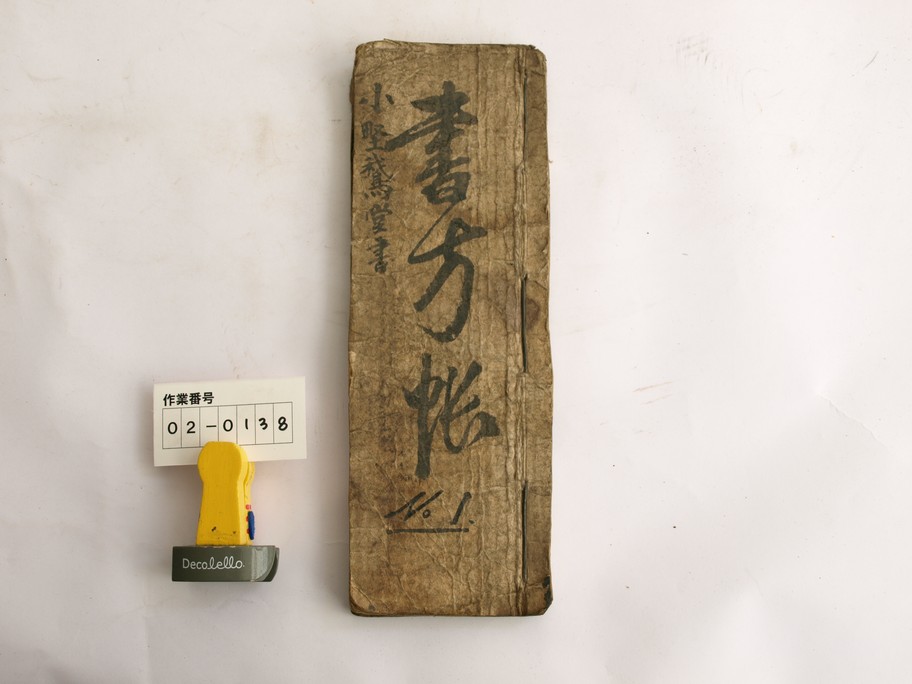 書方帳
小野鵞堂書
No 1.
作業番号
02-0138
Decolello.